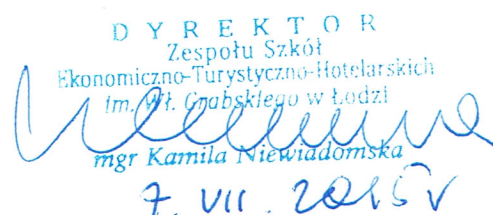 DYREKTOR
Zespołu Szkół
Ekonomiczno-Turystyczno-Hotelarskich
im. Wł. Grabskiego w Łodzi
mgr Kamila Niewiadomska
7. VII. 2015 r